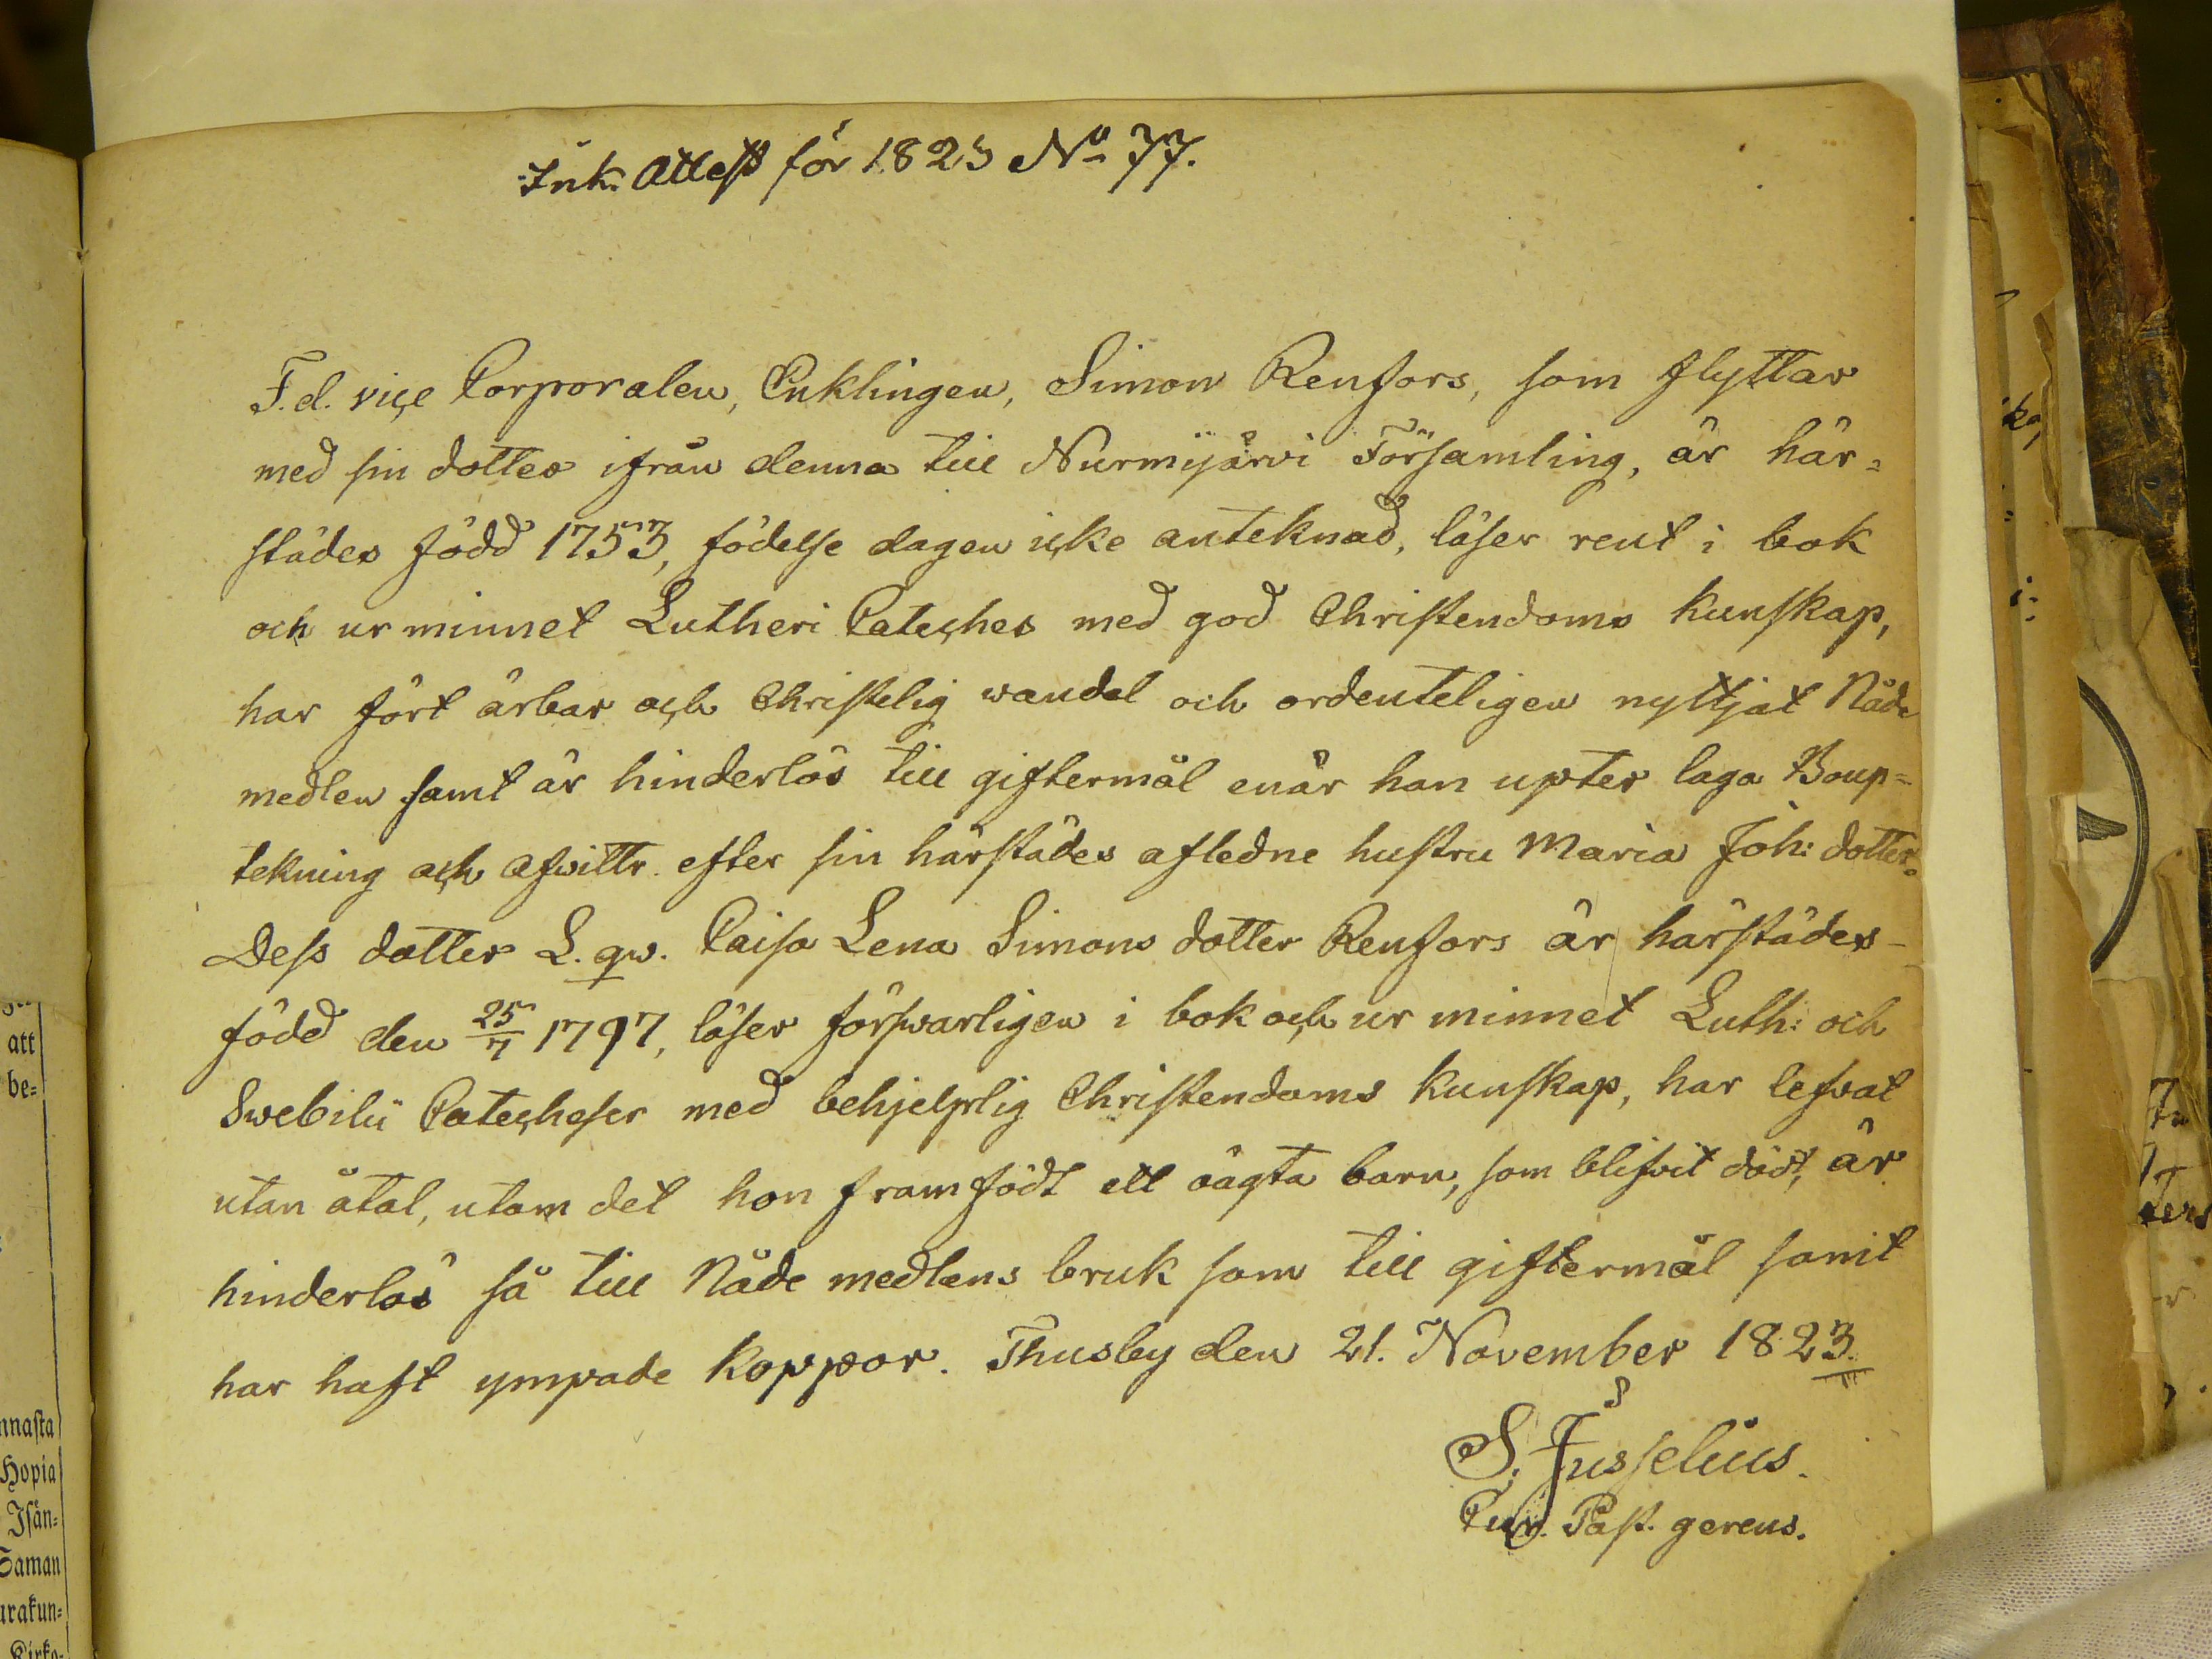 Ink. Attest för 1823 No 77.
F.d. viçe Corporalen, Enklingen, Simon Renfors, som flyttar
med sin dotter ifrån denna till Nurmijärvi Församling, är här=
städes född 1753, födelse dagen içke anteknad, läser rent i bok
och ur minnet Lutheri Cateches med god Christendoms kunskap,
har fört ärbar och Christelig wandel och ordenteligen nyttjat Nåde
medlen samt är hinderlös till giftermål enär han upter laga Boup=
tekning och afwittr. efter sin härstädes afledne hustru Maria Joh: dotter.
Dess dotter L. qw. Caisa Lena Simons dotter Renfors är härstädes
född den 25/7 1797, läser förswarligen i bok och ur minnet Luth: och
Swebilii Catecheser med behjelplig Christendoms kunskap, har lefvat
utan åtal, utom det hon framfödt ett oägta barn, som blifvit dödt, är
hinderlös så till Nåde medlens bruk som till giftermål samt
har haft ympade koppor. Thusby den 21. November 1823.
S. Jusselius.
Cur. Past. gerens.
att
be=
nnasta
Hopia
Isän=
Saman
urakun=
Kirko=